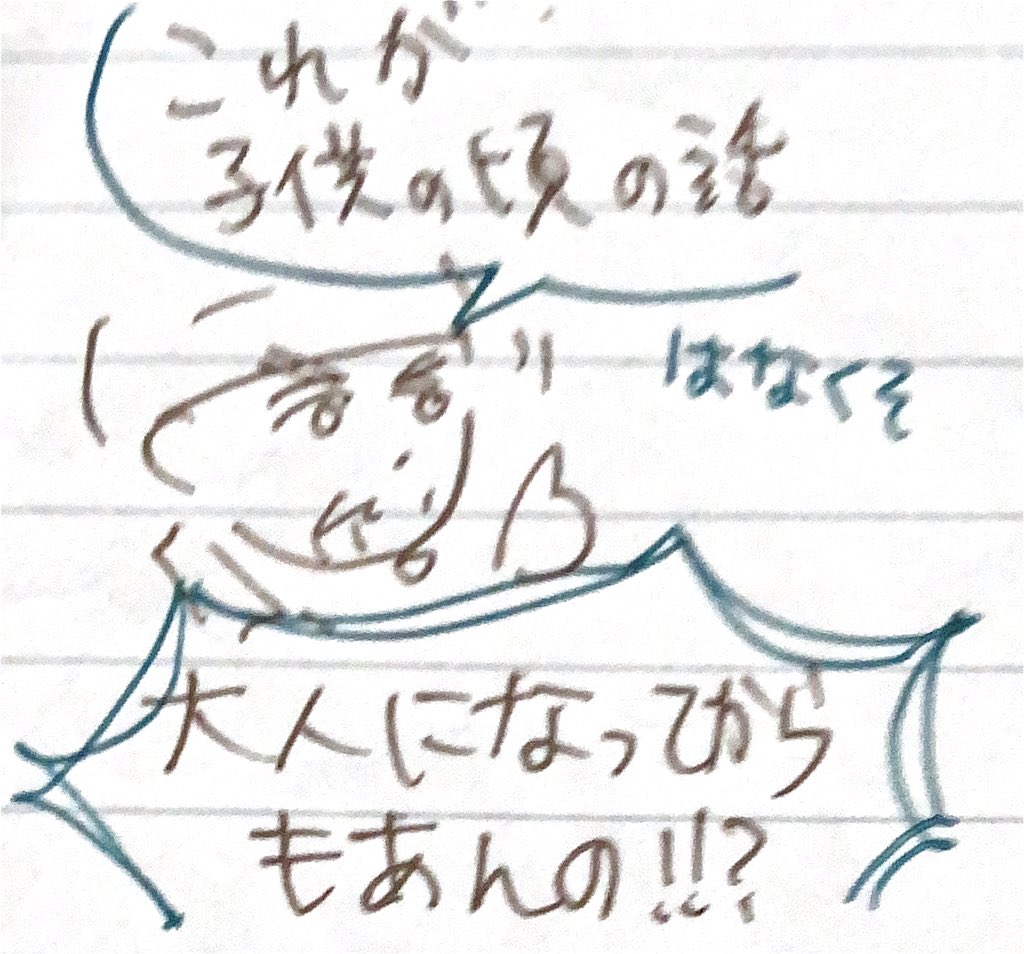 これが
子供の頃の話
はなくそ
大人になってから
もあんの!!?